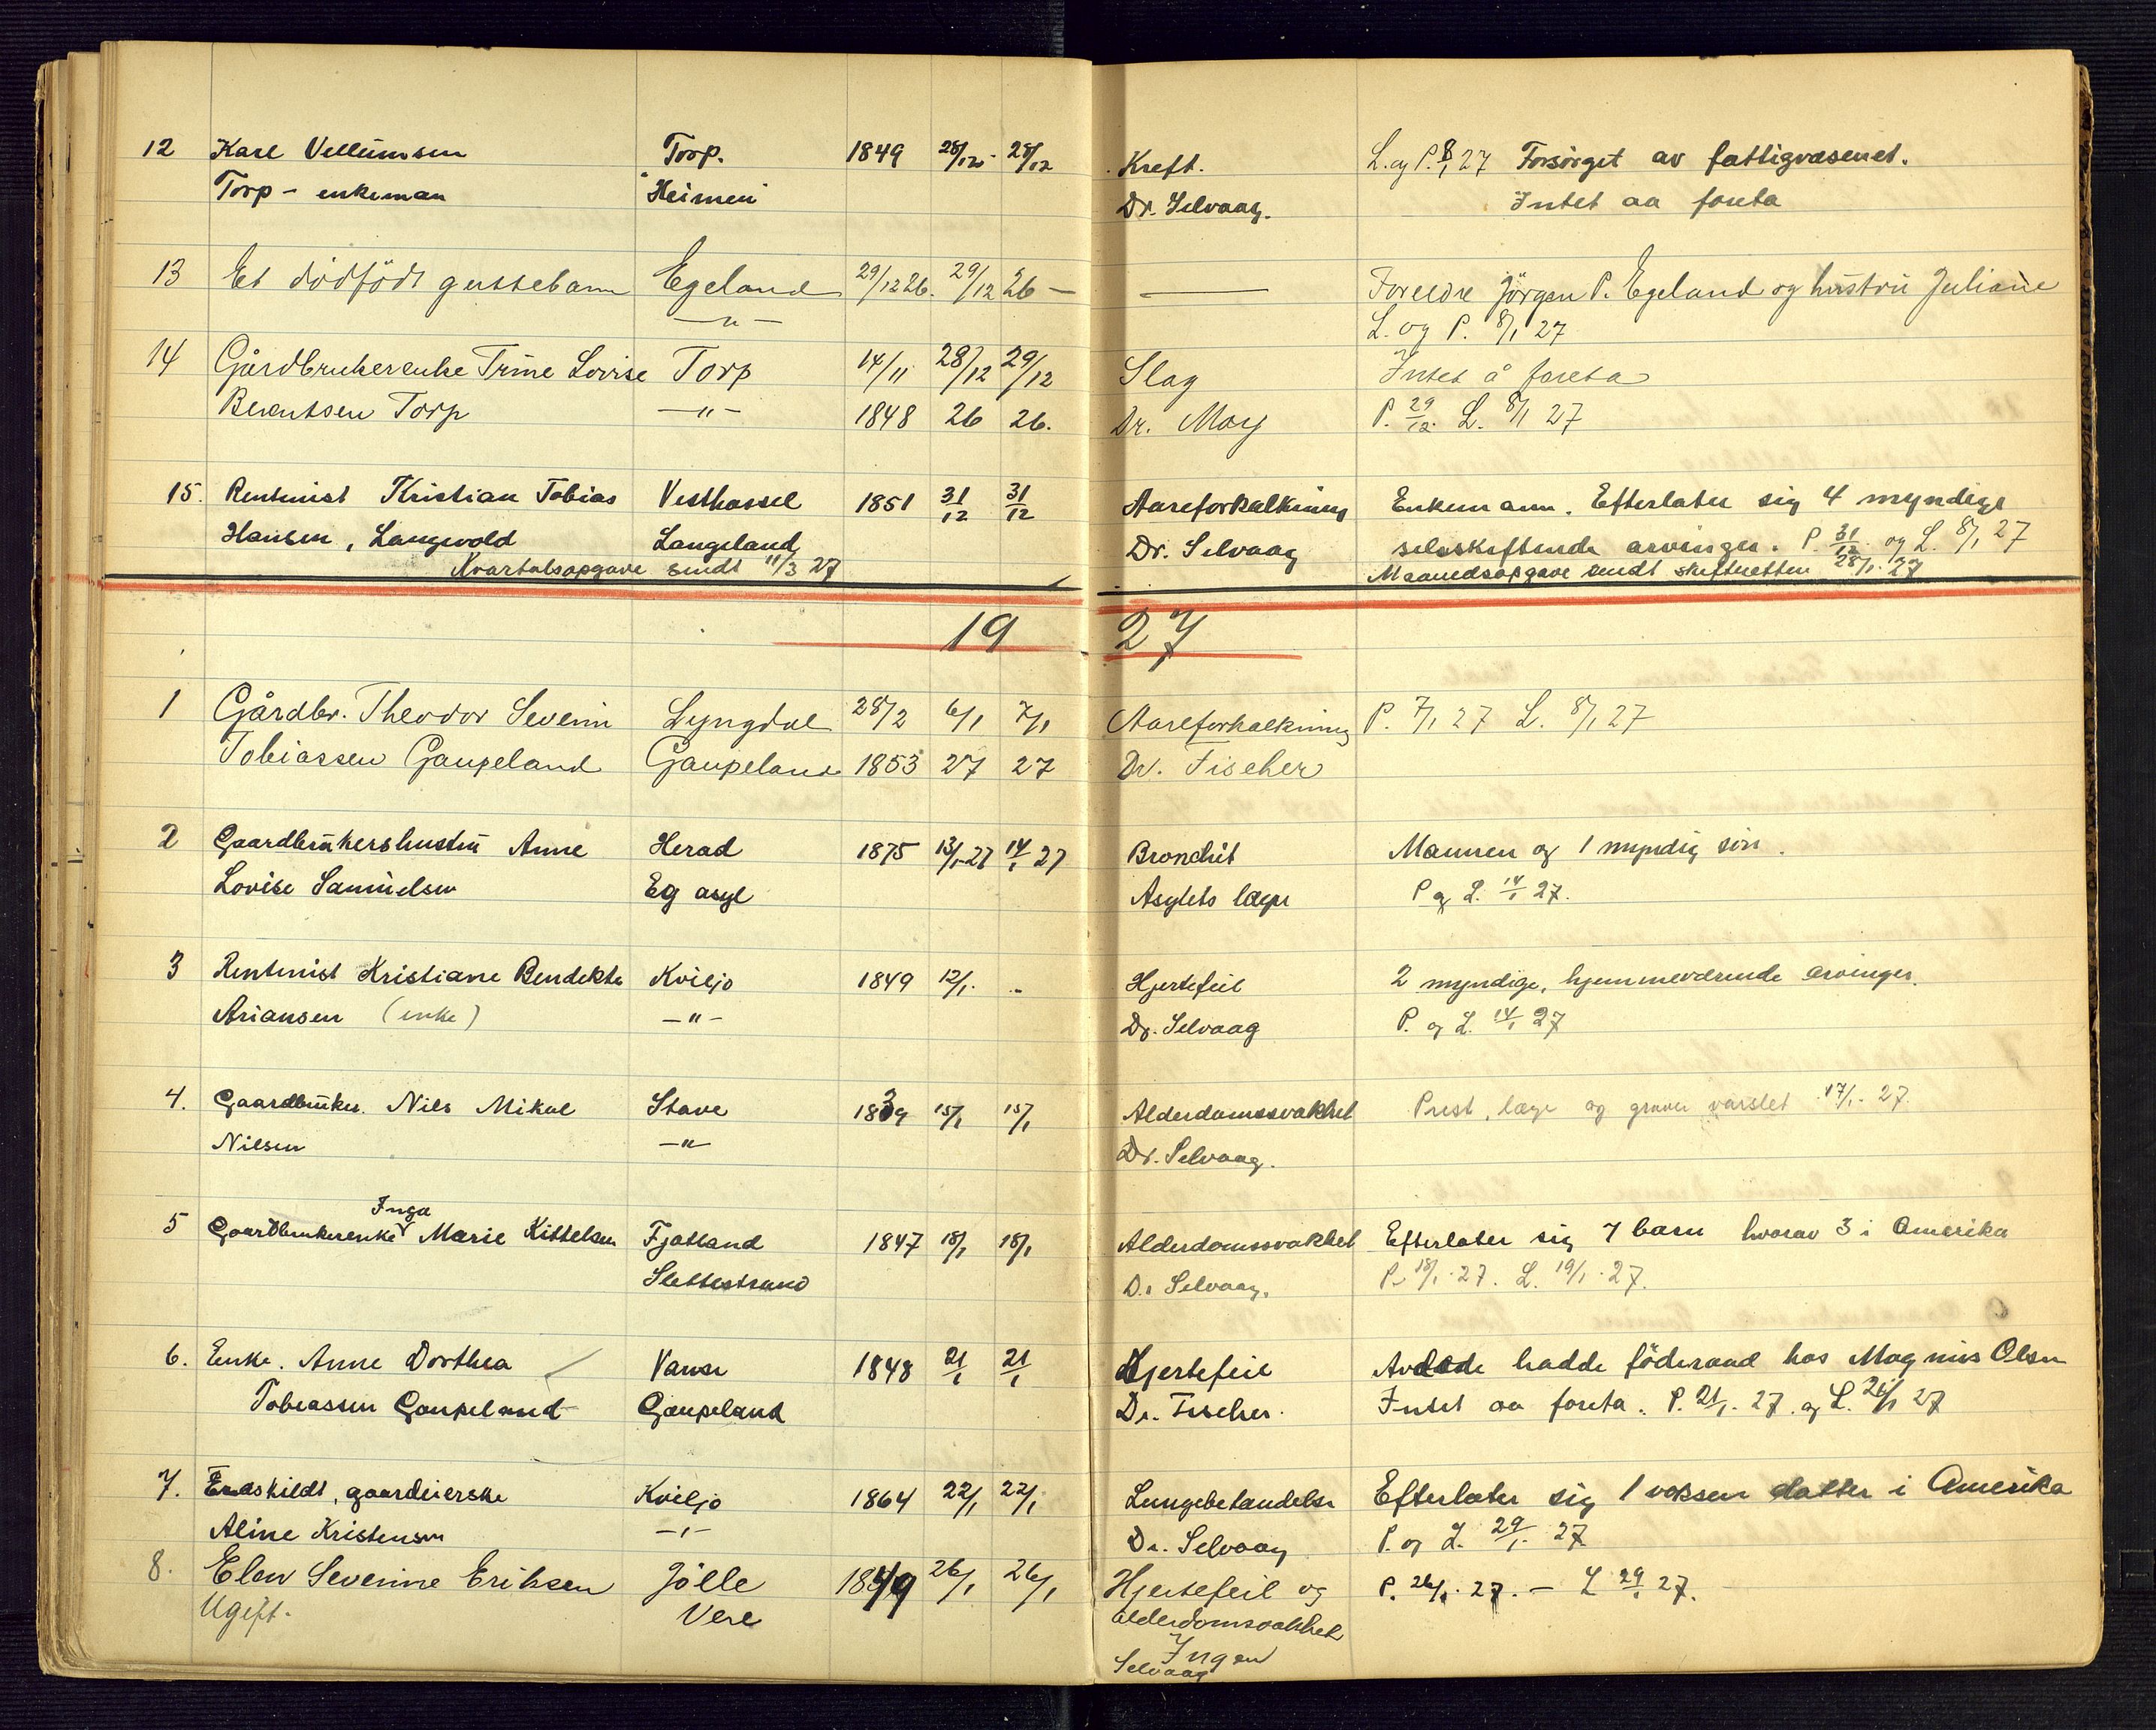 12 Karl Vellumsen Torp. 1849 28/12 - 28/12 Kreft. L. og P. 8/1 27 Forsörget av fattigvæsenet.
Torp - enkeman "Heimen" Dr. Selvaag. Intet aa foreta
13 Et dödfödt guttebarn Egeland 29/12 26. 29/12 26 — — Foreldre Jörgen P. Egeland og hustru Juliane
— " — L. og P. 8/1 27
14 Gårdbrukerenke Trine Lovise Torp 14/11 28/12 29/12 Slag Intet å foreta
Berentsen Torp — " — 1848 26 26. Dr. Moy P. 29/12. L. 8/1 27
15. Rentenist Kristian Tobias Vesthassel 1851 31/12 31/12 Aareforkalkning Enkemann. Efterlater sig 4 myndige
Hansen, Langvold Langeland Dr. Selvaag selvskiftende arvinger. P. 31/12 og L. 8/1 27
Kvartalsopgave sendt 11/3 27 Maanedsopgave sendt skifteretten 28/1. 27
19 27
1 Gårdbr. Theodor Severin Lyngdal 28/2 6/1 7/1 Aareforkalkning P. 7/1 27 L. 8/1 27
Tobiassen Gaupeland Gaupeland 1853 27 27 Dr. Fischer
2 Gaardbrukershustru Anne Herad 1875 13/1-27 14/1 27 Bronchit Mannen og 1 myndig sön.
Lovise Samuelsen Eg asyl Asylets læge P og L. 14/1 27.
3 Rentenist Kristiane Bendekte Kviljo 1849 12/1. .. Hjertefeil 2 myndige, hjemmeværende arvinger.
Ariansen (enke) — " — Dr. Selvaag P. og L. 14/1 27
4. Gaardbruker. Nils Mikal Stave 1839 15/1 15/1 Alderdomssvakhet Prest, læge og graver varslet 17/1. 27.
Nilsen — " — Dr. Selvaag.
Inga
5 Gaardbrukerenke Marie Kittelsen Fjotland 1847 18/1 18/1 Alderdomssvakhet Efterlater sig 7 barn hvorav 3 i Amerika
Slettestrand Dr. Selvaag. P. 18/1. 27. L. 19/1. 27.
6. Enke. Anne Dorthea Vanse 1848 21/1 21/1 Hjertefeil Avdöde hadde föderaad hos Magnus Olsen
Tobiassen Gaupeland Gaupeland Dr. Fischer. Intet aa foreta. P. 21/1. 27. og L. 26/1 27
7. Fradskildt, gaardeierske Kviljo 1864 22/1 22/1 Lungebetændelse Efterlater sig 1 voksen datter i Amerika
Aline Kristensen — " — Dr. Selvaag P. og L. 29/1. 27
8. Elen Severine Eriksen Jölle 1849 26/1 26/1 Hjertefeil og P. 26/1. 27. — L 29/1 27.
Ugift. Vere alderdomsvakhet
Ingen
Selvaag